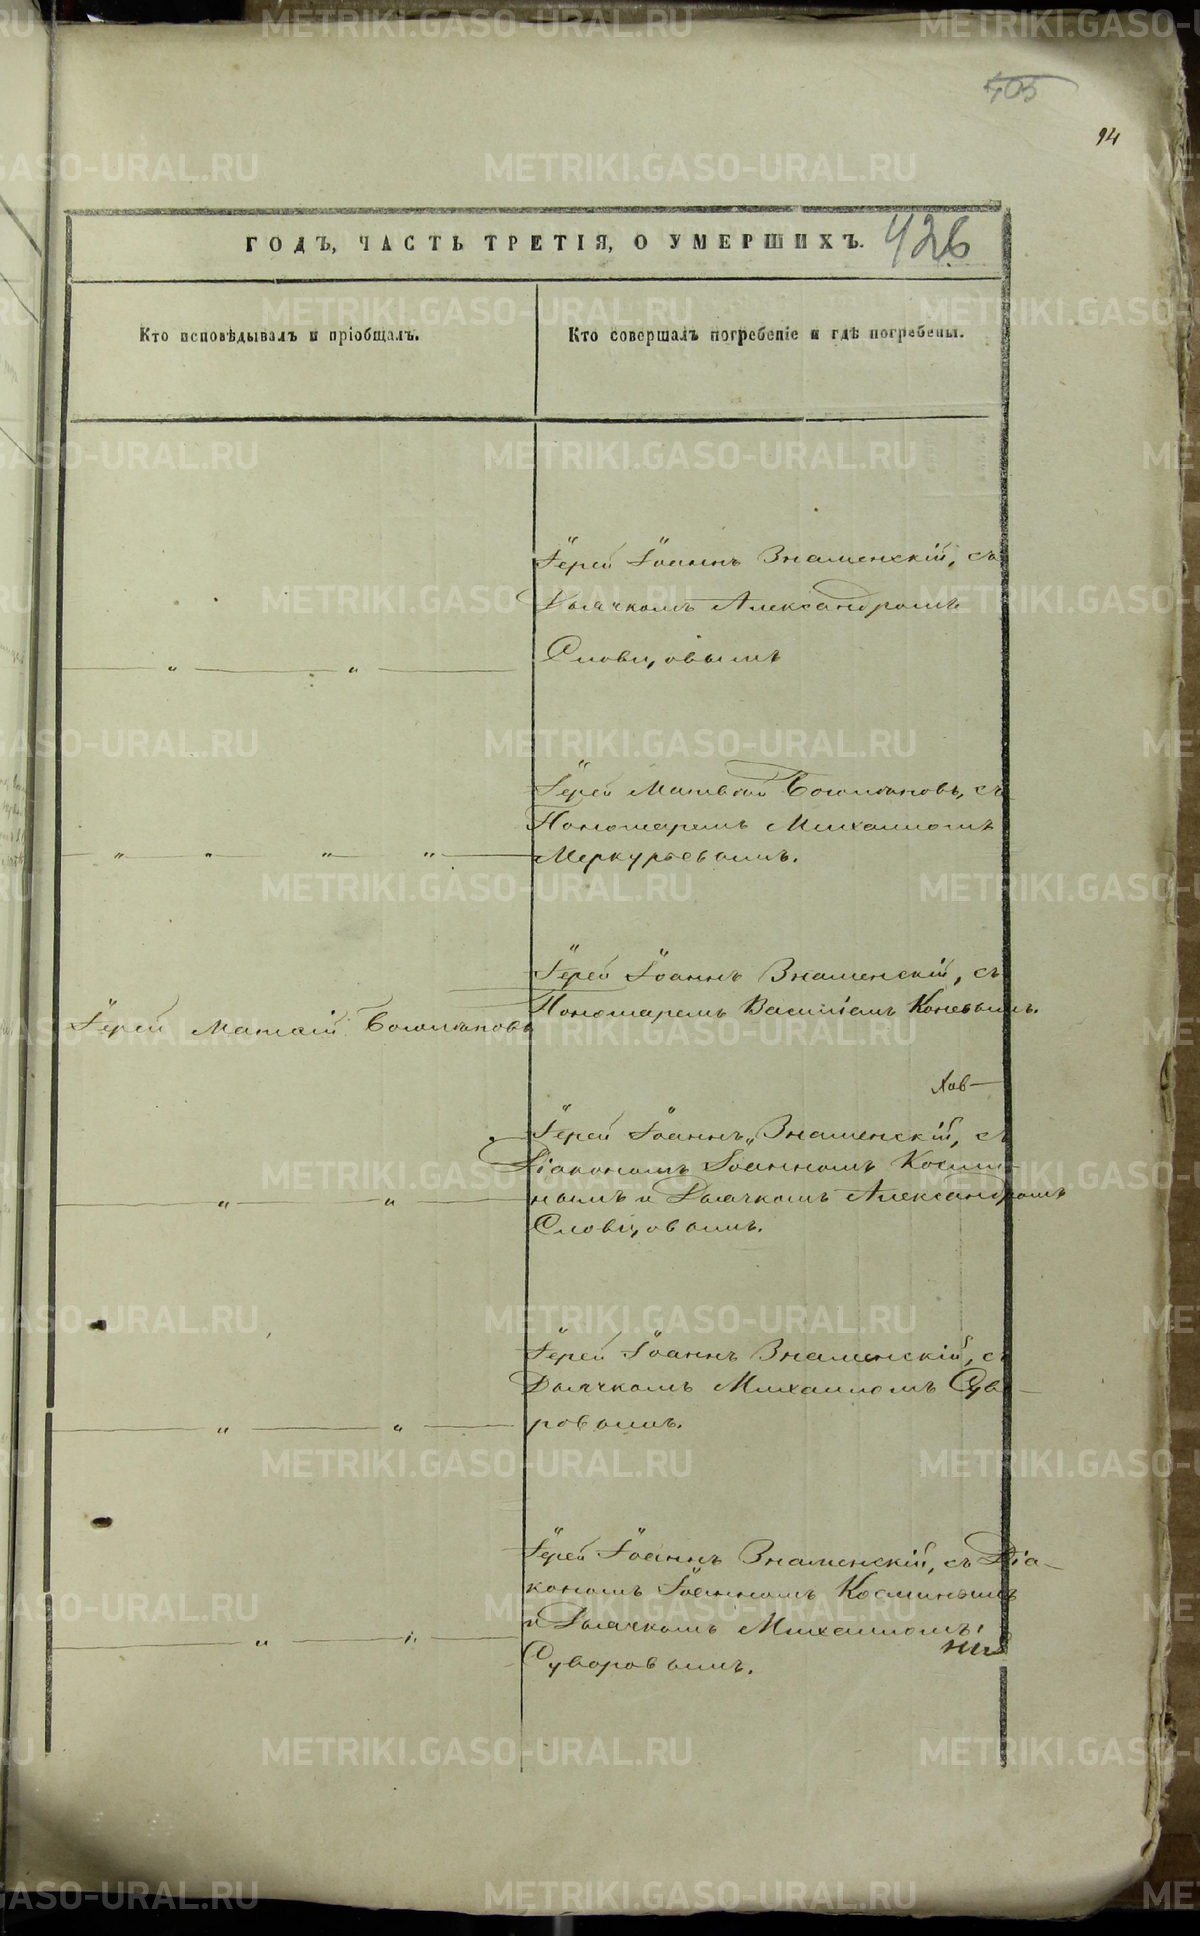 405
94
ГОДЪ, ЧАСТЬ ТРЕТІЯ, О УМЕРШИХЪ. 426
Кто исповѣдывалъ и пріобщалъ.
Кто совершалъ погребеніе и гдѣ погребены.
Іерей Іоаннъ Знаменскій, съ
Дьячкомъ Александромъ
Словцовымъ
Іерей Матвѣй Боголѣповъ, съ
Пономаремъ Михаиломъ
Меркурьевымъ.
Іерей Матѳій Боголѣповъ
Іерей Іоаннъ Знаменскій, съ
Пономаремъ Василіемъ Коневымъ.
Іерей Іоаннъ Знаменскій, съ
Діакономъ Іоанномъ Косми-
нымъ и Дьячкомъ Александромъ
Словцовымъ.
Іерей Іоаннъ Знаменскій, съ
Дьячкомъ Михаиломъ Суво-
ровымъ.
Іерей Іоаннъ Знаменскій, съ Діа-
кономъ Іоанномъ Косминымъ
и Дьячкомъ Михаиломъ
Суворовымъ.
METRIKI.GASO-URAL.RU